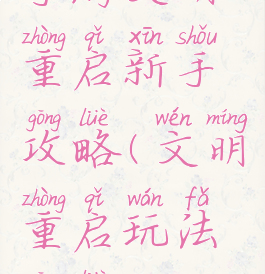 zhòng qǐ xīn shǒu
重启新手
gōng lüè wén míng
攻略(文明
zhòng qǐ wán fǎ
重启玩法